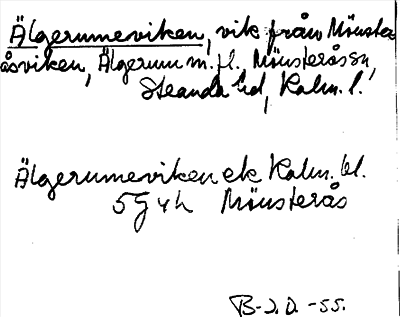 Älgerumeviken, vik från Mönster
åsviken, Älgerum m.fl. Mönsterås sn,
Stranda hd, Kalm. l.
Älgerumeviken ek Kalm. bl.
5G4h Mönsterås
B-J.D. -55.